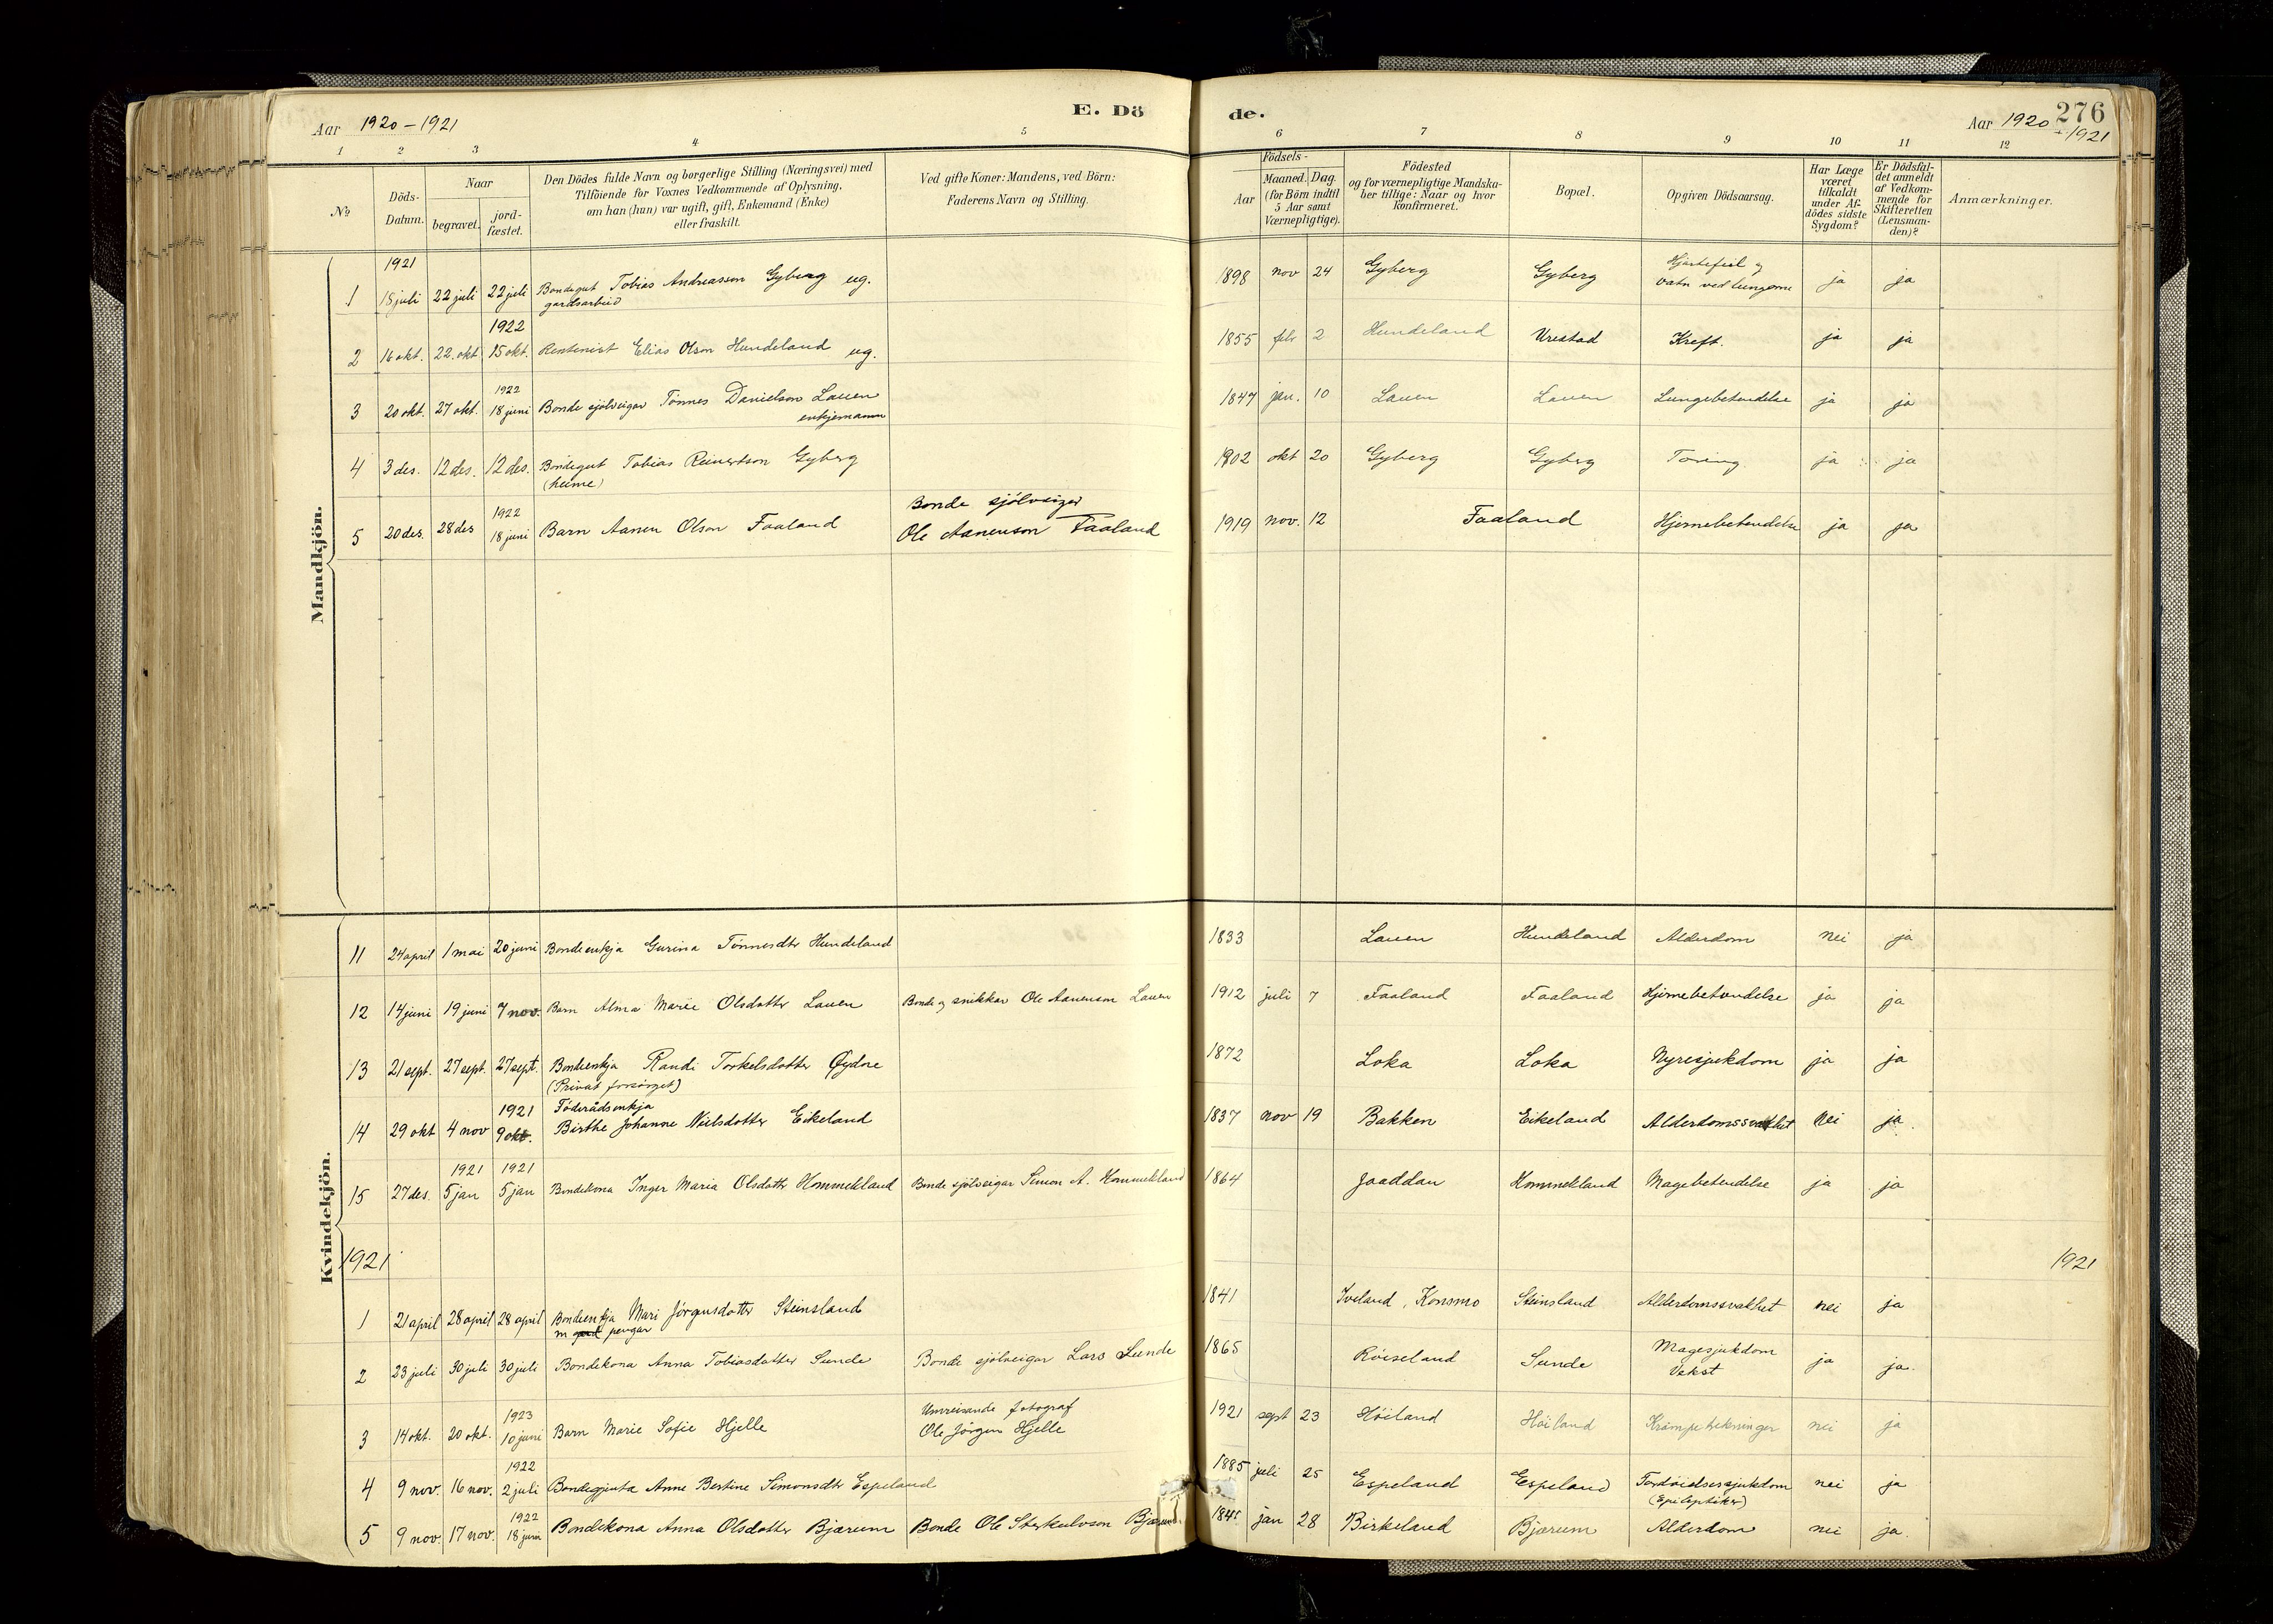 Aar 1920-1921
E. Dö
de.
Aar 1920-1921
276
1 2 3 4 5 6 7 8 9 10 11 12
№
Döds-Datum.
Naar
begravet.
jord-fæstet.
Den Dödes fulde Navn og borgerlige Stilling (Næringsvei) med
Tilföiende for Voxnes Vedkommende af Oplysning,
om han (hun) var ugift, gift, Enkemand (Enke)
eller fraskilt.
Ved gifte Koner: Mandens, ved Börn:
Faderens Navn og Stilling.
Födsels-
Aar
Maaned. Dag.
(for Börn indtil
5 Aar samt
Værnepligtige).
Födested
og for værnepligtige Mandska-
ber tillige: Naar og hvor
konfirmeret.
Bopæl.
Opgiven Dödsaarsag.
Har Læge
været
tilkaldt
under Af-
dödes sidste
Sygdom?
Er Dödsfal-
det anmeldt
af Vedkom-
mende for
Skifteretten
(Lensman-
den)?
Anmærkninger.
Mandkjön.
1921
1 15 juli 22 juli 22 juli Bondegut Tobias Andreasson Gyberg ug. 1898 nov 24 Gyberg Gyberg Hjartefeil og
gardsarbeid vatn ved lungerne ja ja
1922
2 16 okt. 22. okt 15 okt. Rentenist Elias Olson Hundeland ug. 1855 febr 2 Hundeland Vrestad Kreft. ja ja
1922
3 20 okt. 27 okt. 18 juni Bonde sjölveigar Tönnes Danielson Lauen 1847 jan. 10 Lauen Lauen Lungebetendelse ja ja
enkjemann
4 3 des. 12 des. 12 des. Bondegut Tobias Reinertson Gyberg 1902 okt 20 Gyberg Gyberg Tæring ja ja
(heime)
1922 Bonde sjölveigar
5 20 des. 28 des 18 juni Barn Aanen Olson Faaland Ole Aanenson Faaland 1919 nov. 12 Faaland Hjernebetendelse ja ja
Kvindekjön.
11 24 april 1 mai 20 juni Bondeenkja Gurina Tönnesdtr Hundeland 1833 Lauen Hundeland Alderdom nei ja
12 14 juni 19 juni 7 nov. Barn Alma Marie Olsdotter Lauen Bonde og snikkar Ole Aanenson Lauen 1912 juli 7 Faaland Faaland Hjernebetendelse ja ja
13 21 sept. 27 sept. 27 sept. Bondeenkja Randi Torkelsdotter Öydne 1872 Loka Loka Nyresjukdom ja ja
(Privat forsörget)
1921 Föderådsenkja
14 29 okt 4 nov 9 okt. Birthe Johanne Nielsdotter Eikeland 1837 nov 19 Bakken Eikeland Alderdomssvakhet Nei ja.
1921 1921
15 27 des. 5 jan 5 jan Bondekona Inger Maria Olsdotter Hommekland Bonde sjölveigar Simon A. Hommekland 1864 Jaaddan Hommekland Magebetendelse ja ja
1921
1921
1 21 april 28 april 28 april Bondeenkja Mari Jörgensdottr Steinsland 1841 Iveland, Konsmo Steinsland Alderdomssvakhet nei ja
m pengar
2 23 juli 30 juli 30 juli Bondekona Anna Tobiasdotter Sunde Bonde sjölveigar Lars Sunde 1865 Röiseland Sunde Magesjukdom ja ja.
Vekst
1923 Umreisande fotograf
3 14 okt. 20 okt. 10 juni Barn Marie Sofie Hjelle Ole Jörgen Hjelle 1921 sept 23 Höiland Höiland Krampetrekninger nei ja
1922
4 9 nov. 16 nov. 2 juli Bondegjenta Anne Bertine Simonsdtr Espeland 1885 juli 25 Espeland Espeland nei ja
(Epileptiker)
1922
5 9 nov. 17 nov. 18 juni Bondekona Anna Olsdotter Bjærum Bonde Ole Bjærum. jan 28 Birkeland Bjærum Alderdom nei ja.